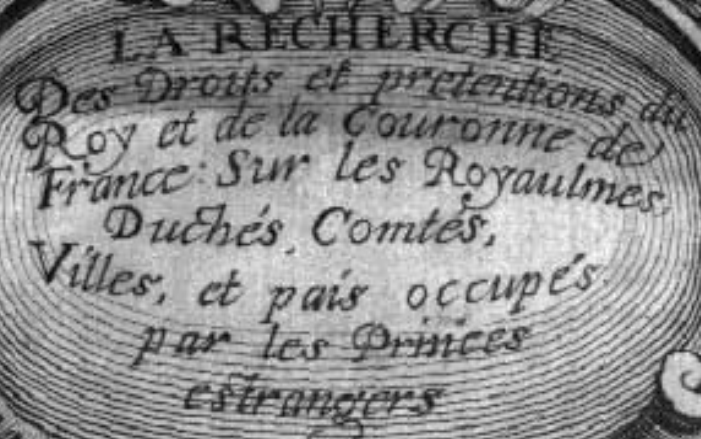 LA RECHERCHE
Des Droits et pretentions du
Roy et de la Couronne de
France: Sur les Royaulmes,
Duchés, Comtés,
Villes, et païs occupés
par les Princes
estrangers